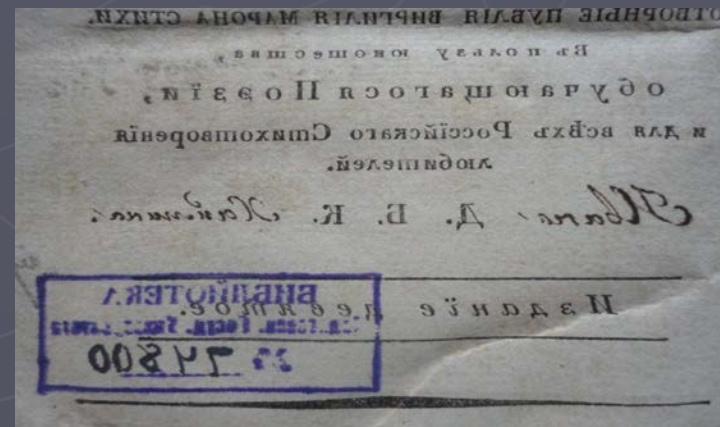 ОТВОРНЫЕ ПУБЛІЯ ВИРГИЛІЯ МАРОНА СТИХИ.
Въ пользу юношества,
обучающагося Поэзіи,
и для всѣхъ Россійскаго Стихотворенія
любителей.
Д. Б. К.
Изданіе девятое.
БИБЛИОТЕКА
74800